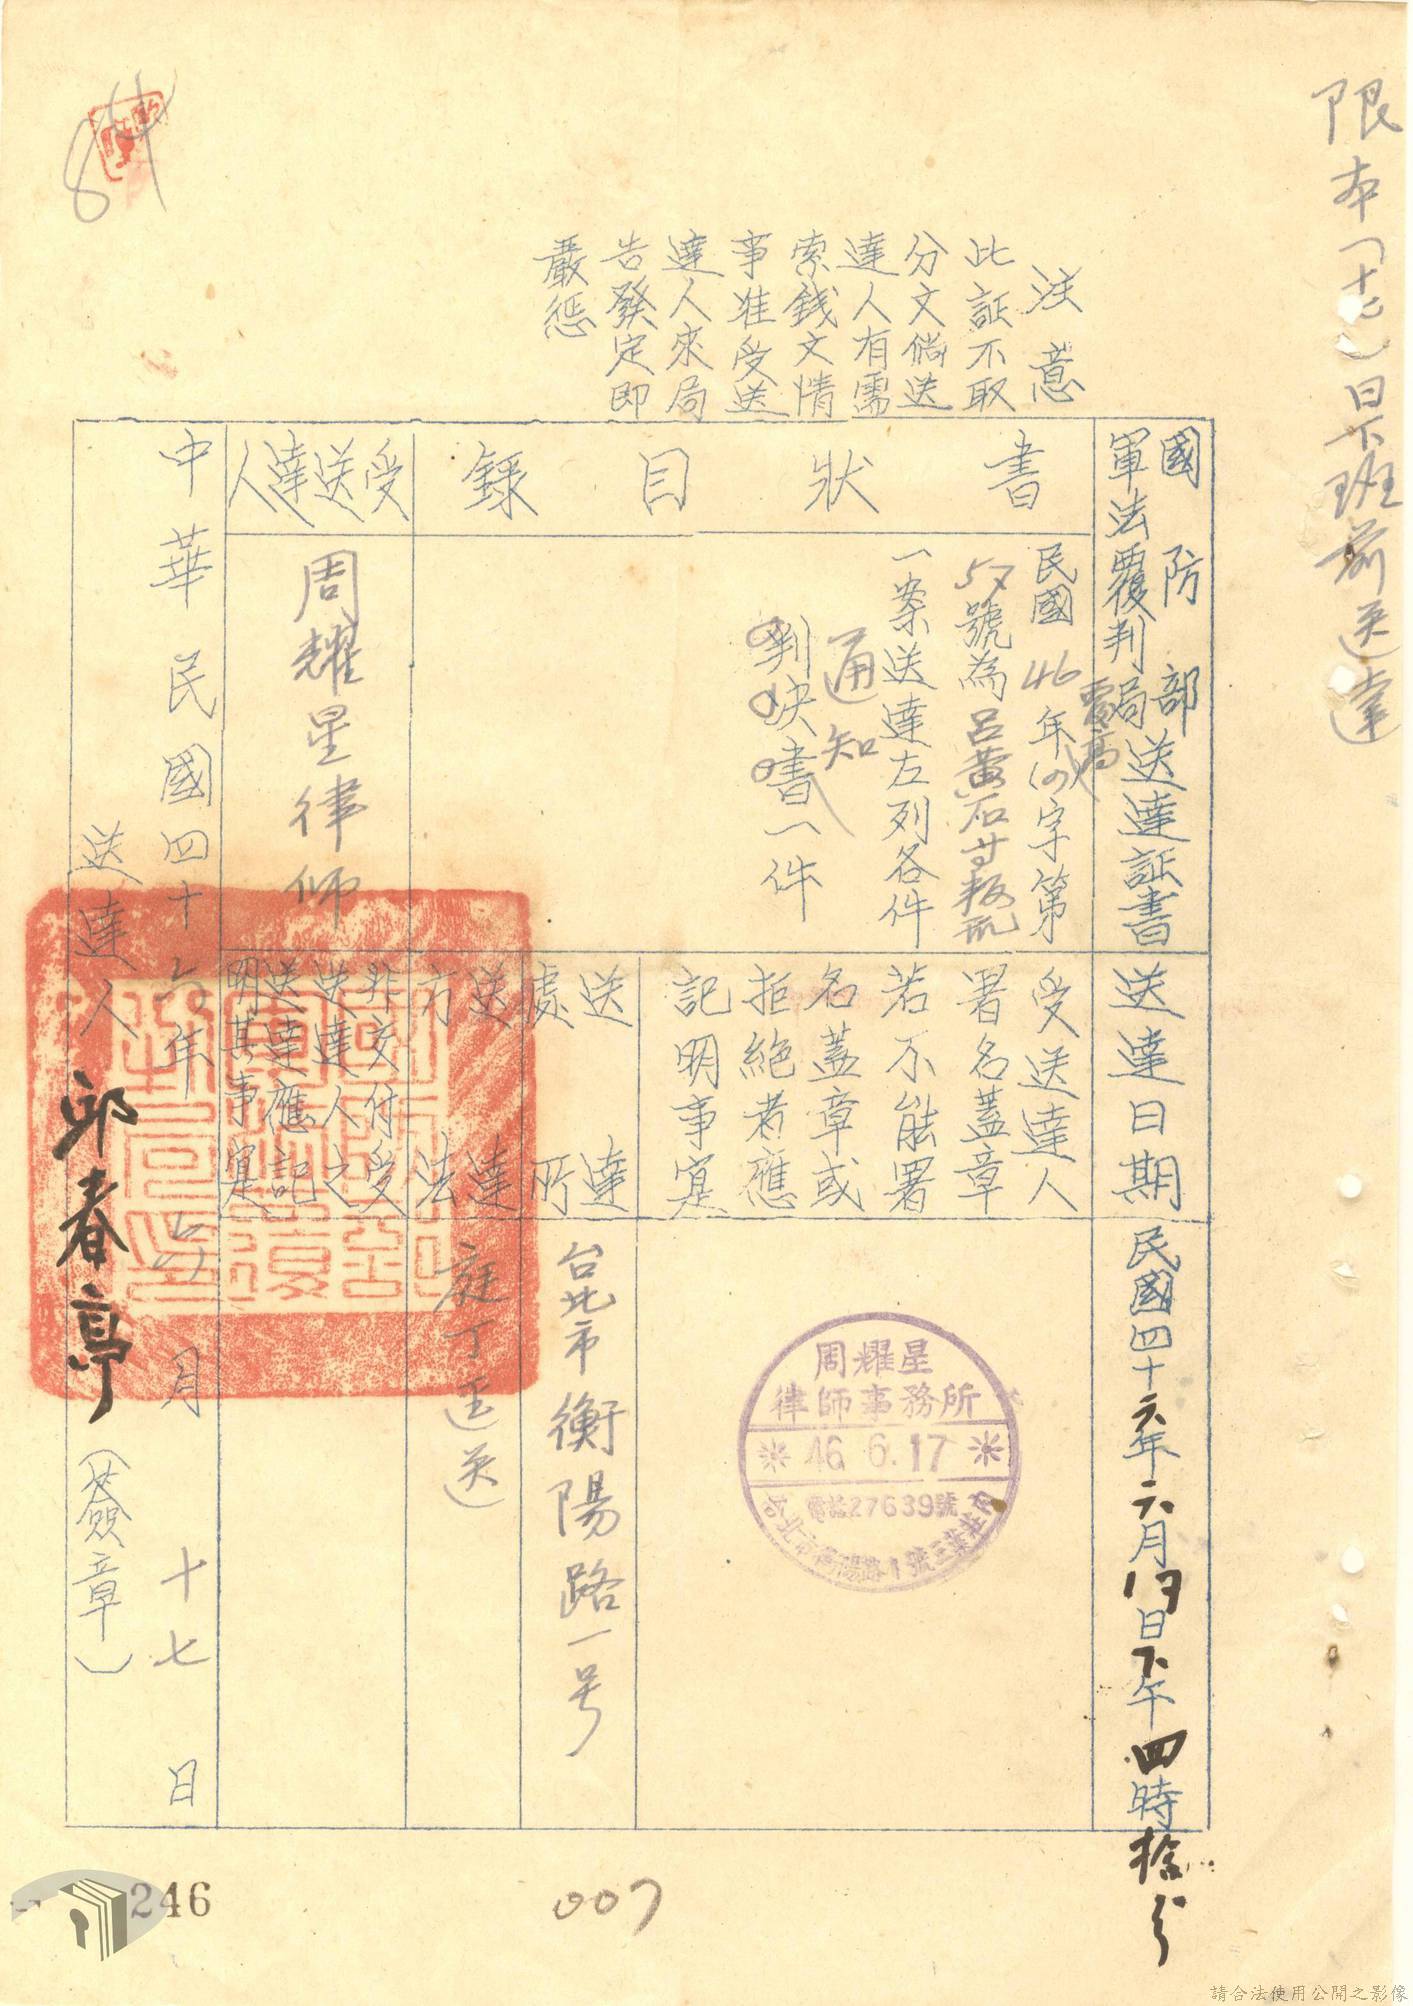 限本(十七)日下班前送達
注意
此証不取
分文倘送
達人有需
索錢文情
事准受送
達人來局
告發定即
嚴懲
國防部
軍法覆判局
送達証書
書狀目錄
民國46年(067)字第
覆高
57號為呂黃石等叛乱
一案送達左列各件
通知
判決書一件
受送達人
周耀星律師
送達日期
民國四十六年六月17日下午四時拾分
受送達人
署名蓋章
若不能署
名蓋章或
拒絕者應
記明事寔
周耀星
律師事務所
46.6.17
電話27639號
台北市衡陽路1號三葉莊內
送達
處所
台北市衡陽路一号
送達
方法
庭丁送
非交付受
送達人之
送達應記
明其事寔
中華民國四十六年六月十七日
送達人
邱春亭
(簽章)
84
246
007
請合法使用公開之影像